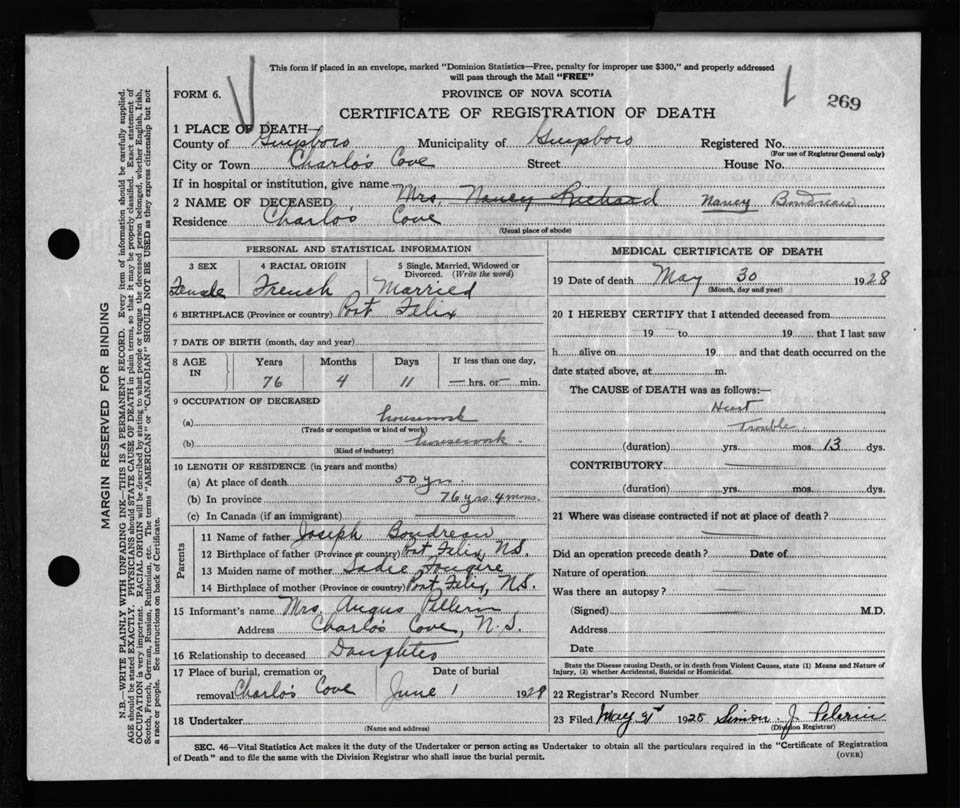 This form if placed in an envelope, marked "Dominion Statistics—Free, penalty for improper use $300," and properly addressed
will pass through the Mail "FREE"
FORM 6.
PROVINCE OF NOVA SCOTIA
269
CERTIFICATE OF REGISTRATION OF DEATH
1 PLACE OF DEATH—
County of Guysboro Municipality of Guysboro Registered No.
(For use of Registrar General only)
City or Town Charlo's Cove Street House No.
If in hospital or institution, give name
2 NAME OF DECEASED Mrs. Nancy Richard Nancy Boudreau
Residence Charlo's Cove
(Usual place of abode)
PERSONAL AND STATISTICAL INFORMATION
3 SEX 4 RACIAL ORIGIN 5 Single, Married, Widowed or
Divorced. (Write the word)
Female French Married
6 BIRTHPLACE (Province or country) Port Felix
7 DATE OF BIRTH (month, day and year)
8 AGE IN Years Months Days If less than one day,
76 4 11 — hrs. or — min.
9 OCCUPATION OF DECEASED
(a) housework
(Trade or occupation or kind of work)
(b) housework.
(Kind of industry)
10 LENGTH OF RESIDENCE (in years and months)
(a) At place of death 50 yrs.
(b) In province 76 yrs 4 mons.
(c) In Canada (if an immigrant)
Parents
11 Name of father Joseph Boudreau
12 Birthplace of father (Province or country) Port Felix, N.S.
13 Maiden name of mother Sadie Fougere
14 Birthplace of mother (Province or country) Port Felix, N.S.
15 Informant's name Mrs. Angus Pellerin
Address Charlo's Cove, N.S.
16 Relationship to deceased Daughter
17 Place of burial, cremation or Date of burial
removal Charlo's Cove June 1 1928
18 Undertaker
(Name and address)
MEDICAL CERTIFICATE OF DEATH
19 Date of death May 30 1928
(Month, day and year)
20 I HEREBY CERTIFY that I attended deceased from
19 to 19 that I last saw
h alive on 19 and that death occurred on the
date stated above, at m.
The CAUSE of DEATH was as follows:—
Heart
Trouble
(duration) yrs. mos. 13 dys.
CONTRIBUTORY
(duration) yrs. mos. dys.
21 Where was disease contracted if not at place of death?
Did an operation precede death? Date of
Nature of operation
Was there an autopsy?
(Signed) M.D.
Address
Date
State the Disease causing Death, or in death from Violent Causes, state (1) Means and Nature of
Injury, (2) whether Accidental, Suicidal or Homicidal.
22 Registrar's Record Number
23 Filed May 31st 1928 Simon J. Pelerin
(Division Registrar)
SEC. 46—Vital Statistics Act makes it the duty of the Undertaker or person acting as Undertaker to obtain all the particulars required in the "Certificate of Registration
of Death" and to file the same with the Division Registrar who shall issue the burial permit.
(OVER)
MARGIN RESERVED FOR BINDING
N.B.—WRITE PLAINLY WITH UNFADING INK—THIS IS A PERMANENT RECORD. Every item of information should be carefully supplied.
AGE should be stated EXACTLY. PHYSICIANS should STATE CAUSE OF DEATH in plain terms, so that it may be properly classified. Exact statement of
OCCUPATION is very important. RACIAL ORIGIN will be described by stating to what people or tongue the deceased person belonged, whether English, Irish,
Scotch, French, German, Russian, Ruthenian, etc. The terms "AMERICAN" or "CANADIAN" SHOULD NOT BE USED as they express citizenship but not
a race or people. See instructions on back of Certificate.